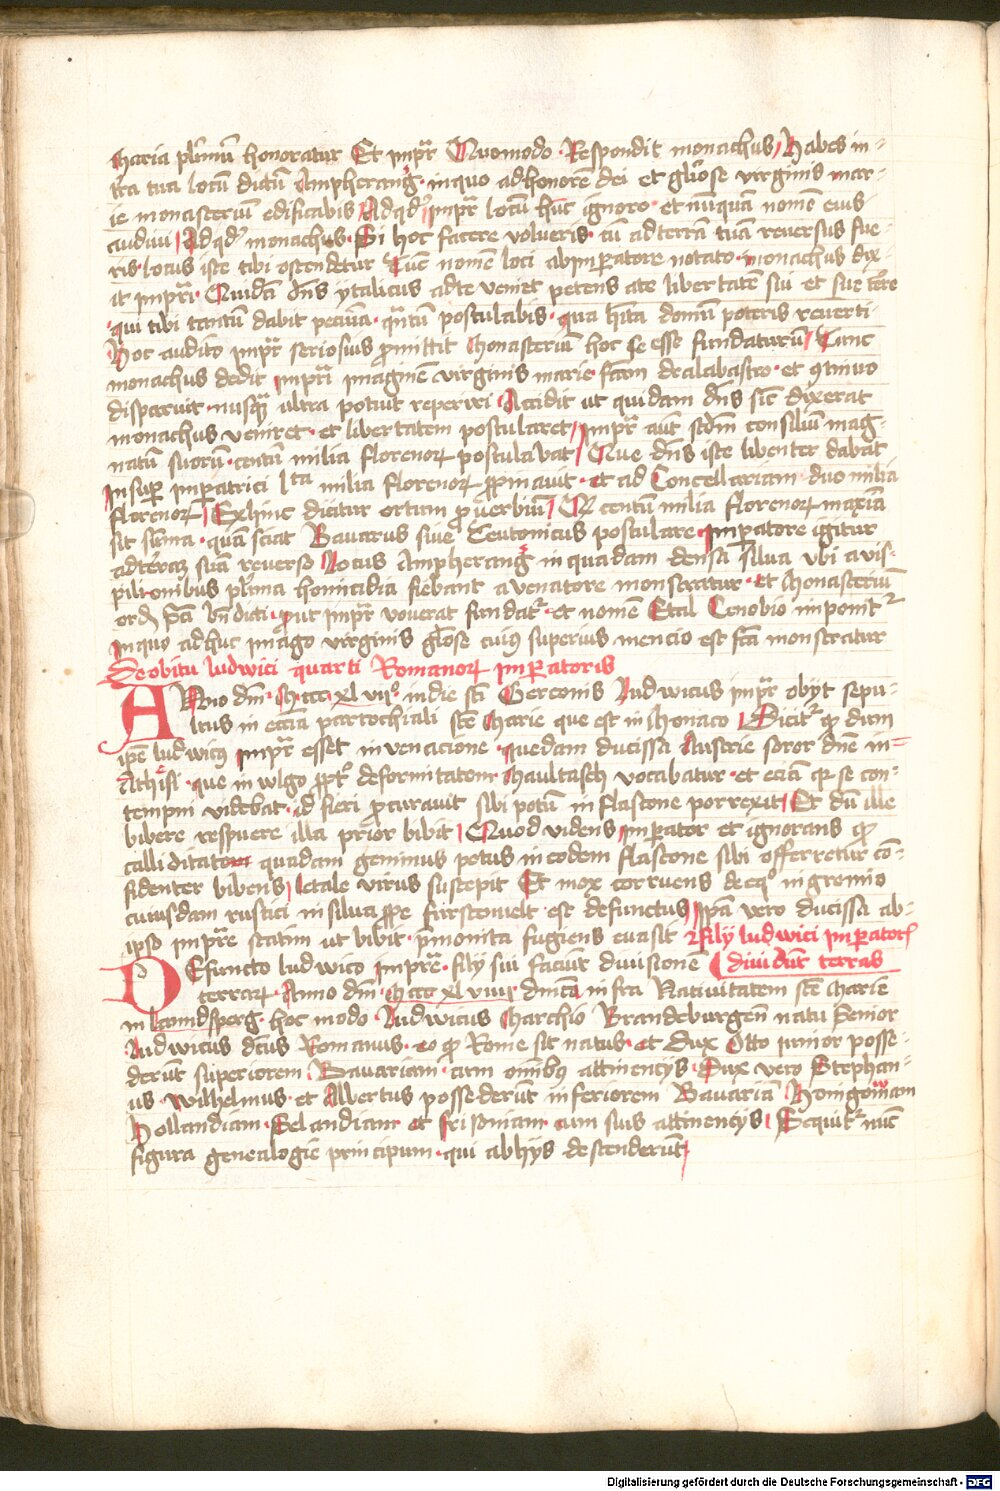 Maria plimū honoratur Et impr̄ Quomodo Respondit monachus Habes in-
tra tua locū dictū Ampherang in quo ad honorē dei et gliose virginis mar-
ie monasteriū edificabis Ad qd' impr̄ locū hūc ignoro et nūquā nomē eius
audiui Ad qd' monachus Si hoc facere volueris cū ad terrā tuā reuersus fue-
ris locus iste tibi ostendetur Tūc nomē loci ab impatore notato monachus dix-
it impri Quidā dn̄s ytalicus ad te veniet petens a te libertatē sui et sue trē
qui tibi tantū dabit pecūia qntū postulabis qua hīta domū poteris reuerti
Hoc audito impr̄ seriosius pmittit Monasteriū hoc se esse fundaturū Tunc
monachus dedit impri ymaginē virginis marie fctm de alabastro et 9tinuo
disparuit nusq̄ ultra potuit reperiri Accidit ut quidam dn̄s sic dixerat
monachus veniret et libertatem postularet impr̄ aut scdm consiliū mag-
natū suorū centū milia florenoꝝ postulabat Que dn̄s iste libenter dabat
Insup impatrici lta milia florenoꝝ ppinauit et ad Concellariam duo milia
florenoꝝ Ex hinc dicitur ortum puerbiū Qr centū milia florenoꝝ maxīa
sit sūma quā sciat Bauarus siue Teutonicus postulare impatore igitur
ad terā suā reuerso Locus Ampherang in quadam densa silua vbi a vis-
pilionibus plima homicidia fiebant a venatore monstratur et Monasteriū
ord sc̄i bn̄dicti put impr̄ vouerat fundatr et nomen Etal Cenobio imponitr
in quo adhuc imago virginis gl̄ose cuiꝯ superius mencio est fc̄a monstratur
De obitu ludwici quarti Romanoꝝ impatoris
ANno dm̄ Mccc xl vii° in die sc̄i Gereonis Ludwicus impr̄ obyt sepu-
ltus in ecc̄ia parrochiali sc̄e Marie que est in Monaco Dicitr qꝫ dum
ip̄e ludwicꝯ impr̄ esset in venacione quedam ducissa Austrie soror dn̄e in
Athisi que in wlgo ppt' deformitatem Maultasch vocabatur et eciā qꝛ se con-
tempni videbat id fieri pcurauit sibi potū in flascone porrexit Et dū ille
bibere respuere illa prior bibit Quod videns impator et ignorans qꝫ
calliditate quadam geminus potus in eodem flascone sibi offerretur cō-
fidenter bibens letale virus suscepit Et mox corruens de eqo in gremio
cuiusdam rustici in silua ppe furstenuelt est defunctus Ip̄a vero ducissa ab
ipso impr̄e statim ut bibit pmonita fugiens euasit Fily ludwici impatorꝭ
DEfuncto ludwico impr̄e fily sui faciūt diuisionē diuidūt terras
terraꝝ Anno dm̄ Mccc xl viiij dm̄ca infra Natiuitatem sc̄e Marie
in lanndsperg hoc modo Ludwicus Marchio Brandeburgen̄ natu Senior
Ludwicus dc̄us Romanus eo qꝫ Rome sit natus et Dux Otto iunior posse-
derūt superiorem Bauariam cum om̄ibꝯ attinencys Dux vero Stephan-
us Wilhelmus et Albertus possederūt inferiorem Bauariā Honigomam
Hollandiam Selandiam et frisoniam cum suis attinencys Sequitr nūc
figura genealogiē principum qui ab hijs descenderūt
Digitalisierung gefördert durch die Deutsche Forschungsgemeinschaft - DFG